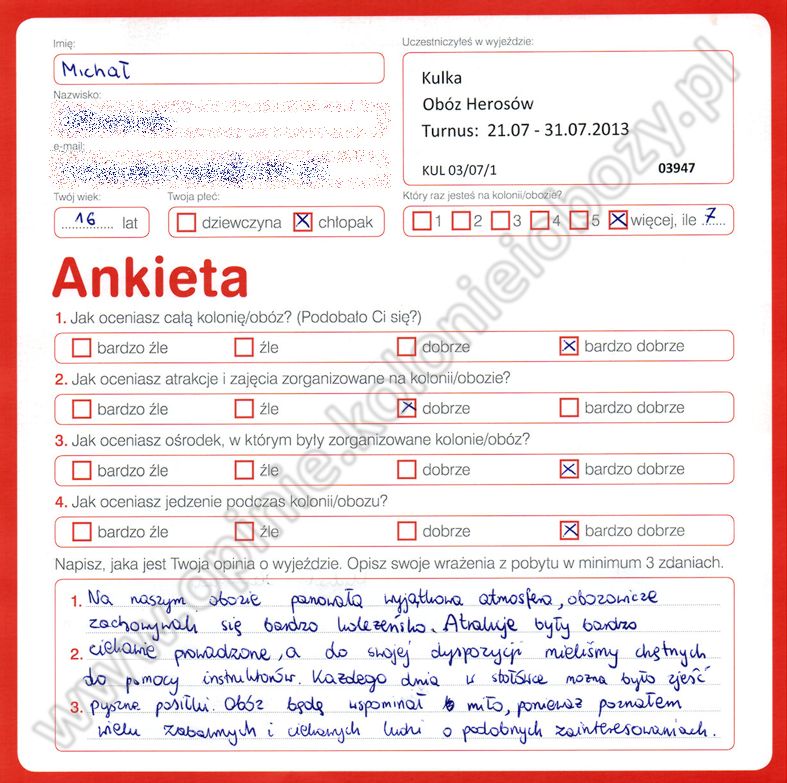 Imię:
Uczestniczyłeś w wyjeździe:
Michał
Kulka
Obóz Herosów
Turnus: 21.07 - 31.07.2013
KUL 03/07/1 03947
Nazwisko:
e-mail:
Twój wiek:
Twoja płeć:
Który raz jesteś na kolonii/obozie?
16 lat
dziewczyna chłopak
1 2 3 4 5 więcej, ile 7
Ankieta
1. Jak oceniasz całą kolonię/obóz? (Podobało Ci się?)
bardzo źle źle dobrze bardzo dobrze
2. Jak oceniasz atrakcje i zajęcia zorganizowane na kolonii/obozie?
bardzo źle źle dobrze bardzo dobrze
3. Jak oceniasz ośrodek, w którym były zorganizowane kolonie/obóz?
bardzo źle źle dobrze bardzo dobrze
4. Jak oceniasz jedzenie podczas kolonii/obozu?
bardzo źle źle dobrze bardzo dobrze
Napisz, jaka jest Twoja opinia o wyjeździe. Opisz swoje wrażenia z pobytu w minimum 3 zdaniach.
1. Na naszym obozie panowała wyjątkowa atmosfera, obozowicze
zachowywali się bardzo koleżeńsko. Atrakcje były bardzo
2. ciekawie prowadzone, a do swojej dyspozycji mieliśmy chętnych
do pomocy instruktorów. Każdego dnia w stołówce można było zjeść
3. pyszne posiłki. Obóz będę wspominał miło, ponieważ poznałem
wielu zabawnych i ciekawych ludzi o podobnych zainteresowaniach.
www.opinie.kolonieiobozy.pl